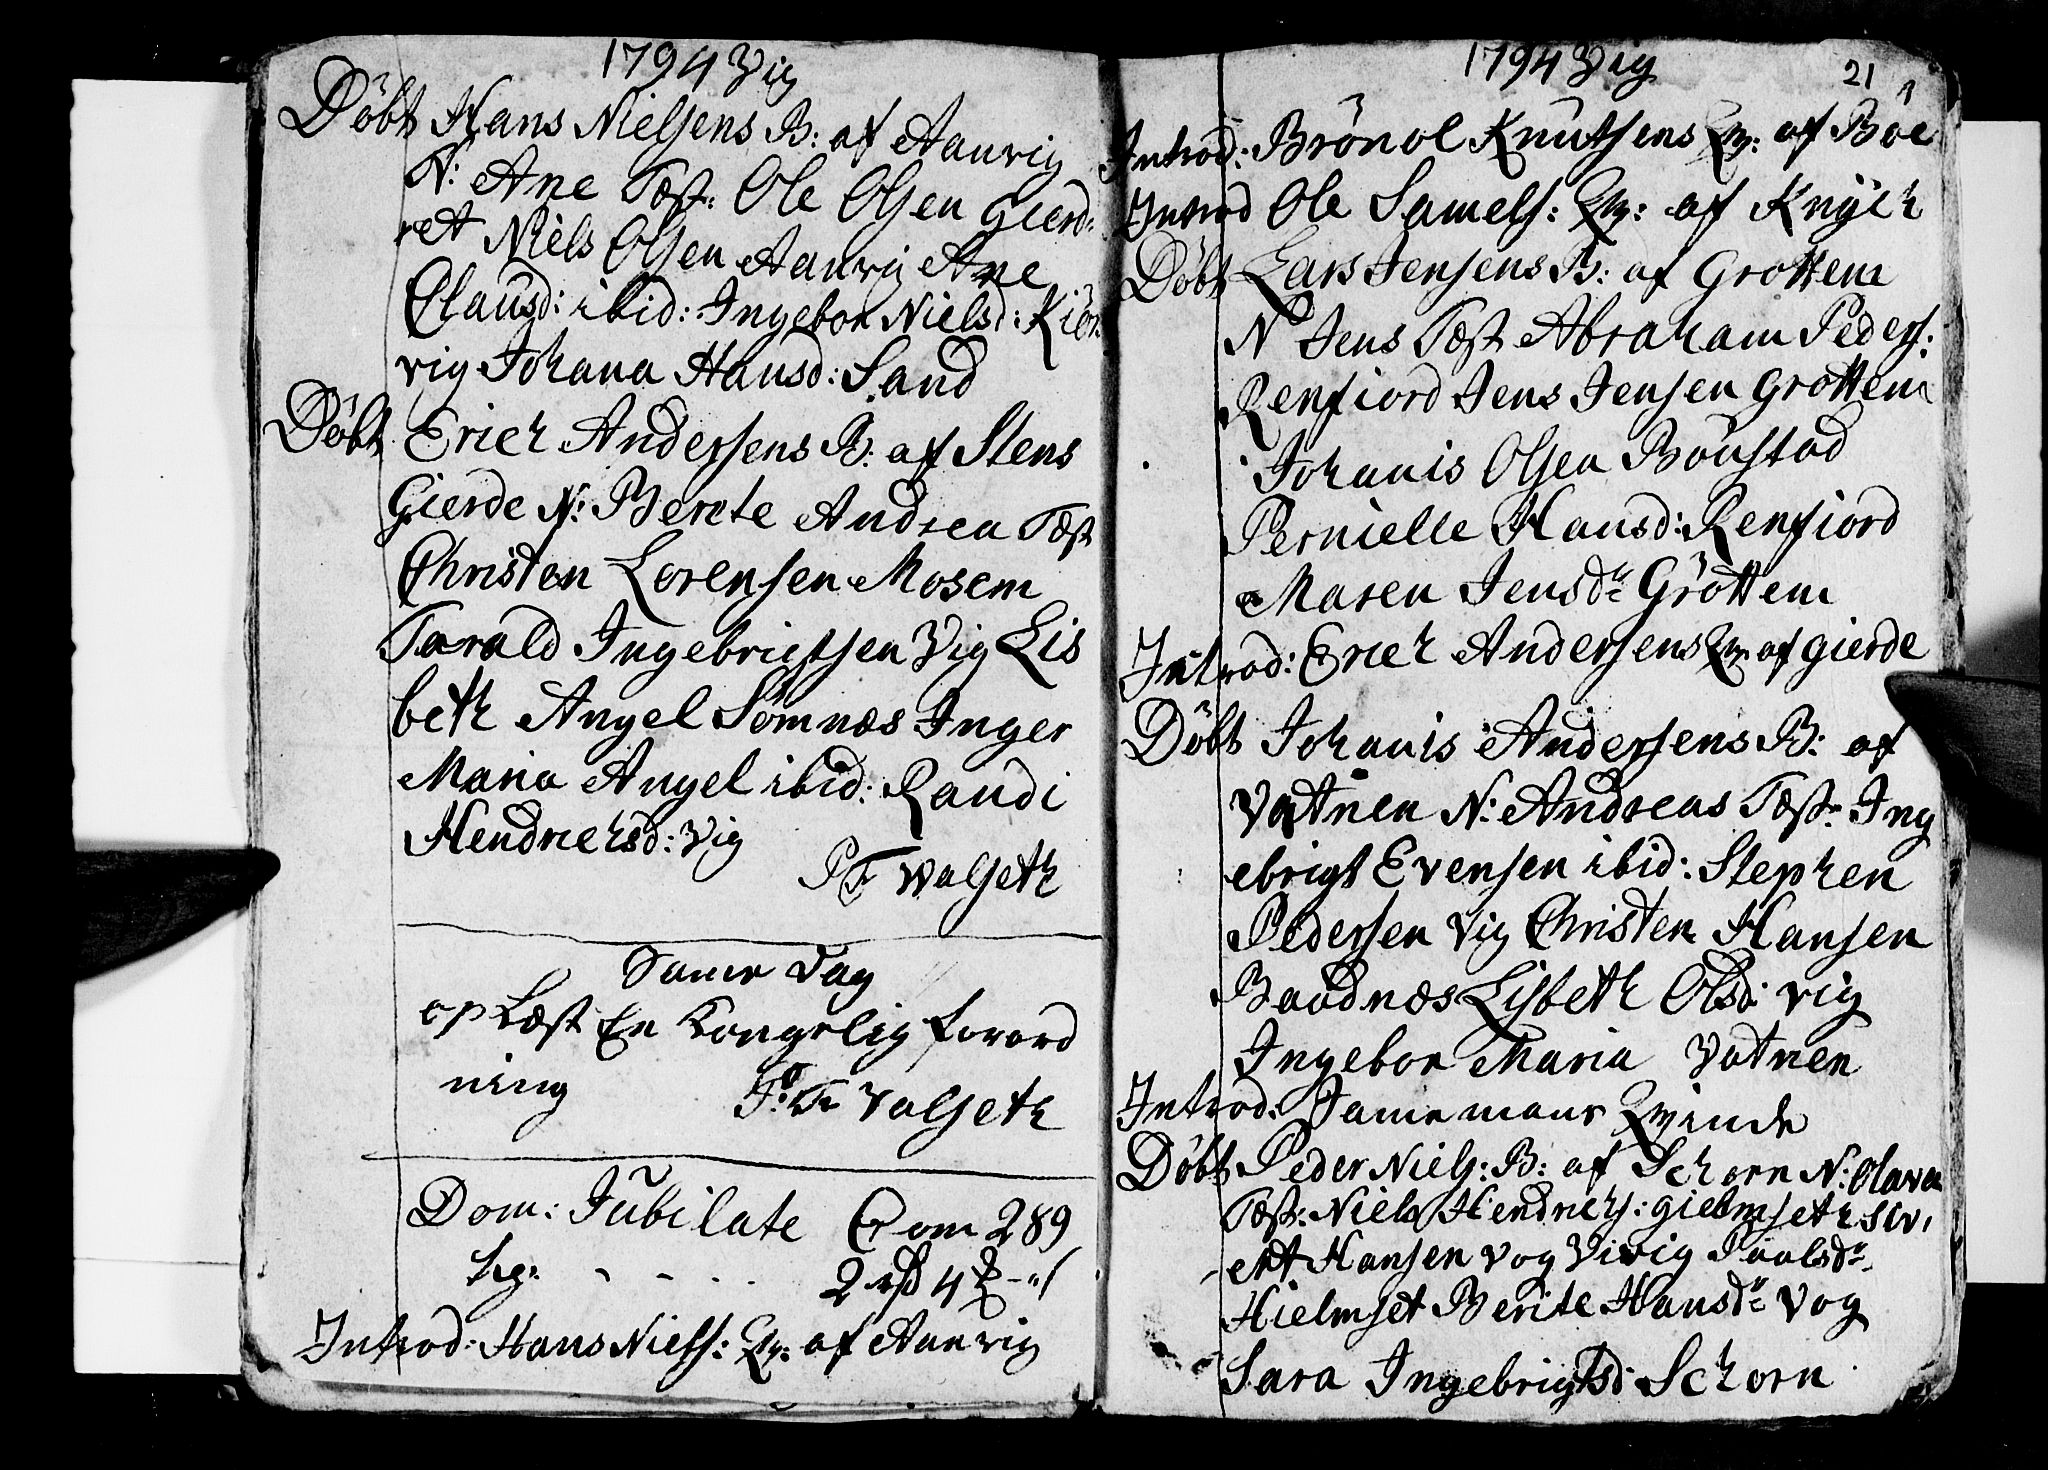 1794 Vig
Döbt Hans Nielsens B: af Aanvig
N: Ane Test: Ole Olsen Gierd:
ret Niels Olsen Aanvig Ane
Olausd: ibid: Ingebor Nielsd: Kiör
vig Johana Hansd: Sand
Döbt Erich Andersens B: af Stens
Gierde N: Berete Andrea Test
Christen Lorensen Mosem
Tarald Ingebrigtsen Vig Lis
beth Angel Sömnæs Inger
Maria Angel ibid: Randi
Hendrichsd: Vig
P T Valseth
Same Dag
op Læst En Kongelig forord
ning
P: T: Valseth
Dom: Jubilate Com 289
2 rd 4
Introd: Hans Niels: Qv: af Aanvig
1794 Vig 21
Introd: Brönol Knutsens Qv: af Böe
Introd Ole Samels: Qv: af Knÿch
Döbt Lars Jensens B: af Grottem
N Jens Test Abraham Peders:
Renfiord Jens Jensen Grottem
Johanis Olsen Bönstad
Pernielle Hansd: Renfiord
Maren Jensdr Gröttem
Introd: Erich Andersens Qv af gierde
Döbt Johanis Andersens B: af
Vatnen N: Andreas Test: Ing
ebrigt Evensen ibid: Stephen
Pedersen Vig Christen Hansen
Baadnæs Lisbeth Olsd: vig
Ingebor Maria Vatnen
Introd: Same mans Qvinde
Döbt Peder Niels: B: af Schorn N: Olava
Test: Niels Hendrichs: gielmseth siv
ert Hansen Vog Vivig Paalsdr
Hielmset Berite Hansdr Vog
Sara Ingebrigtsd: Schorn